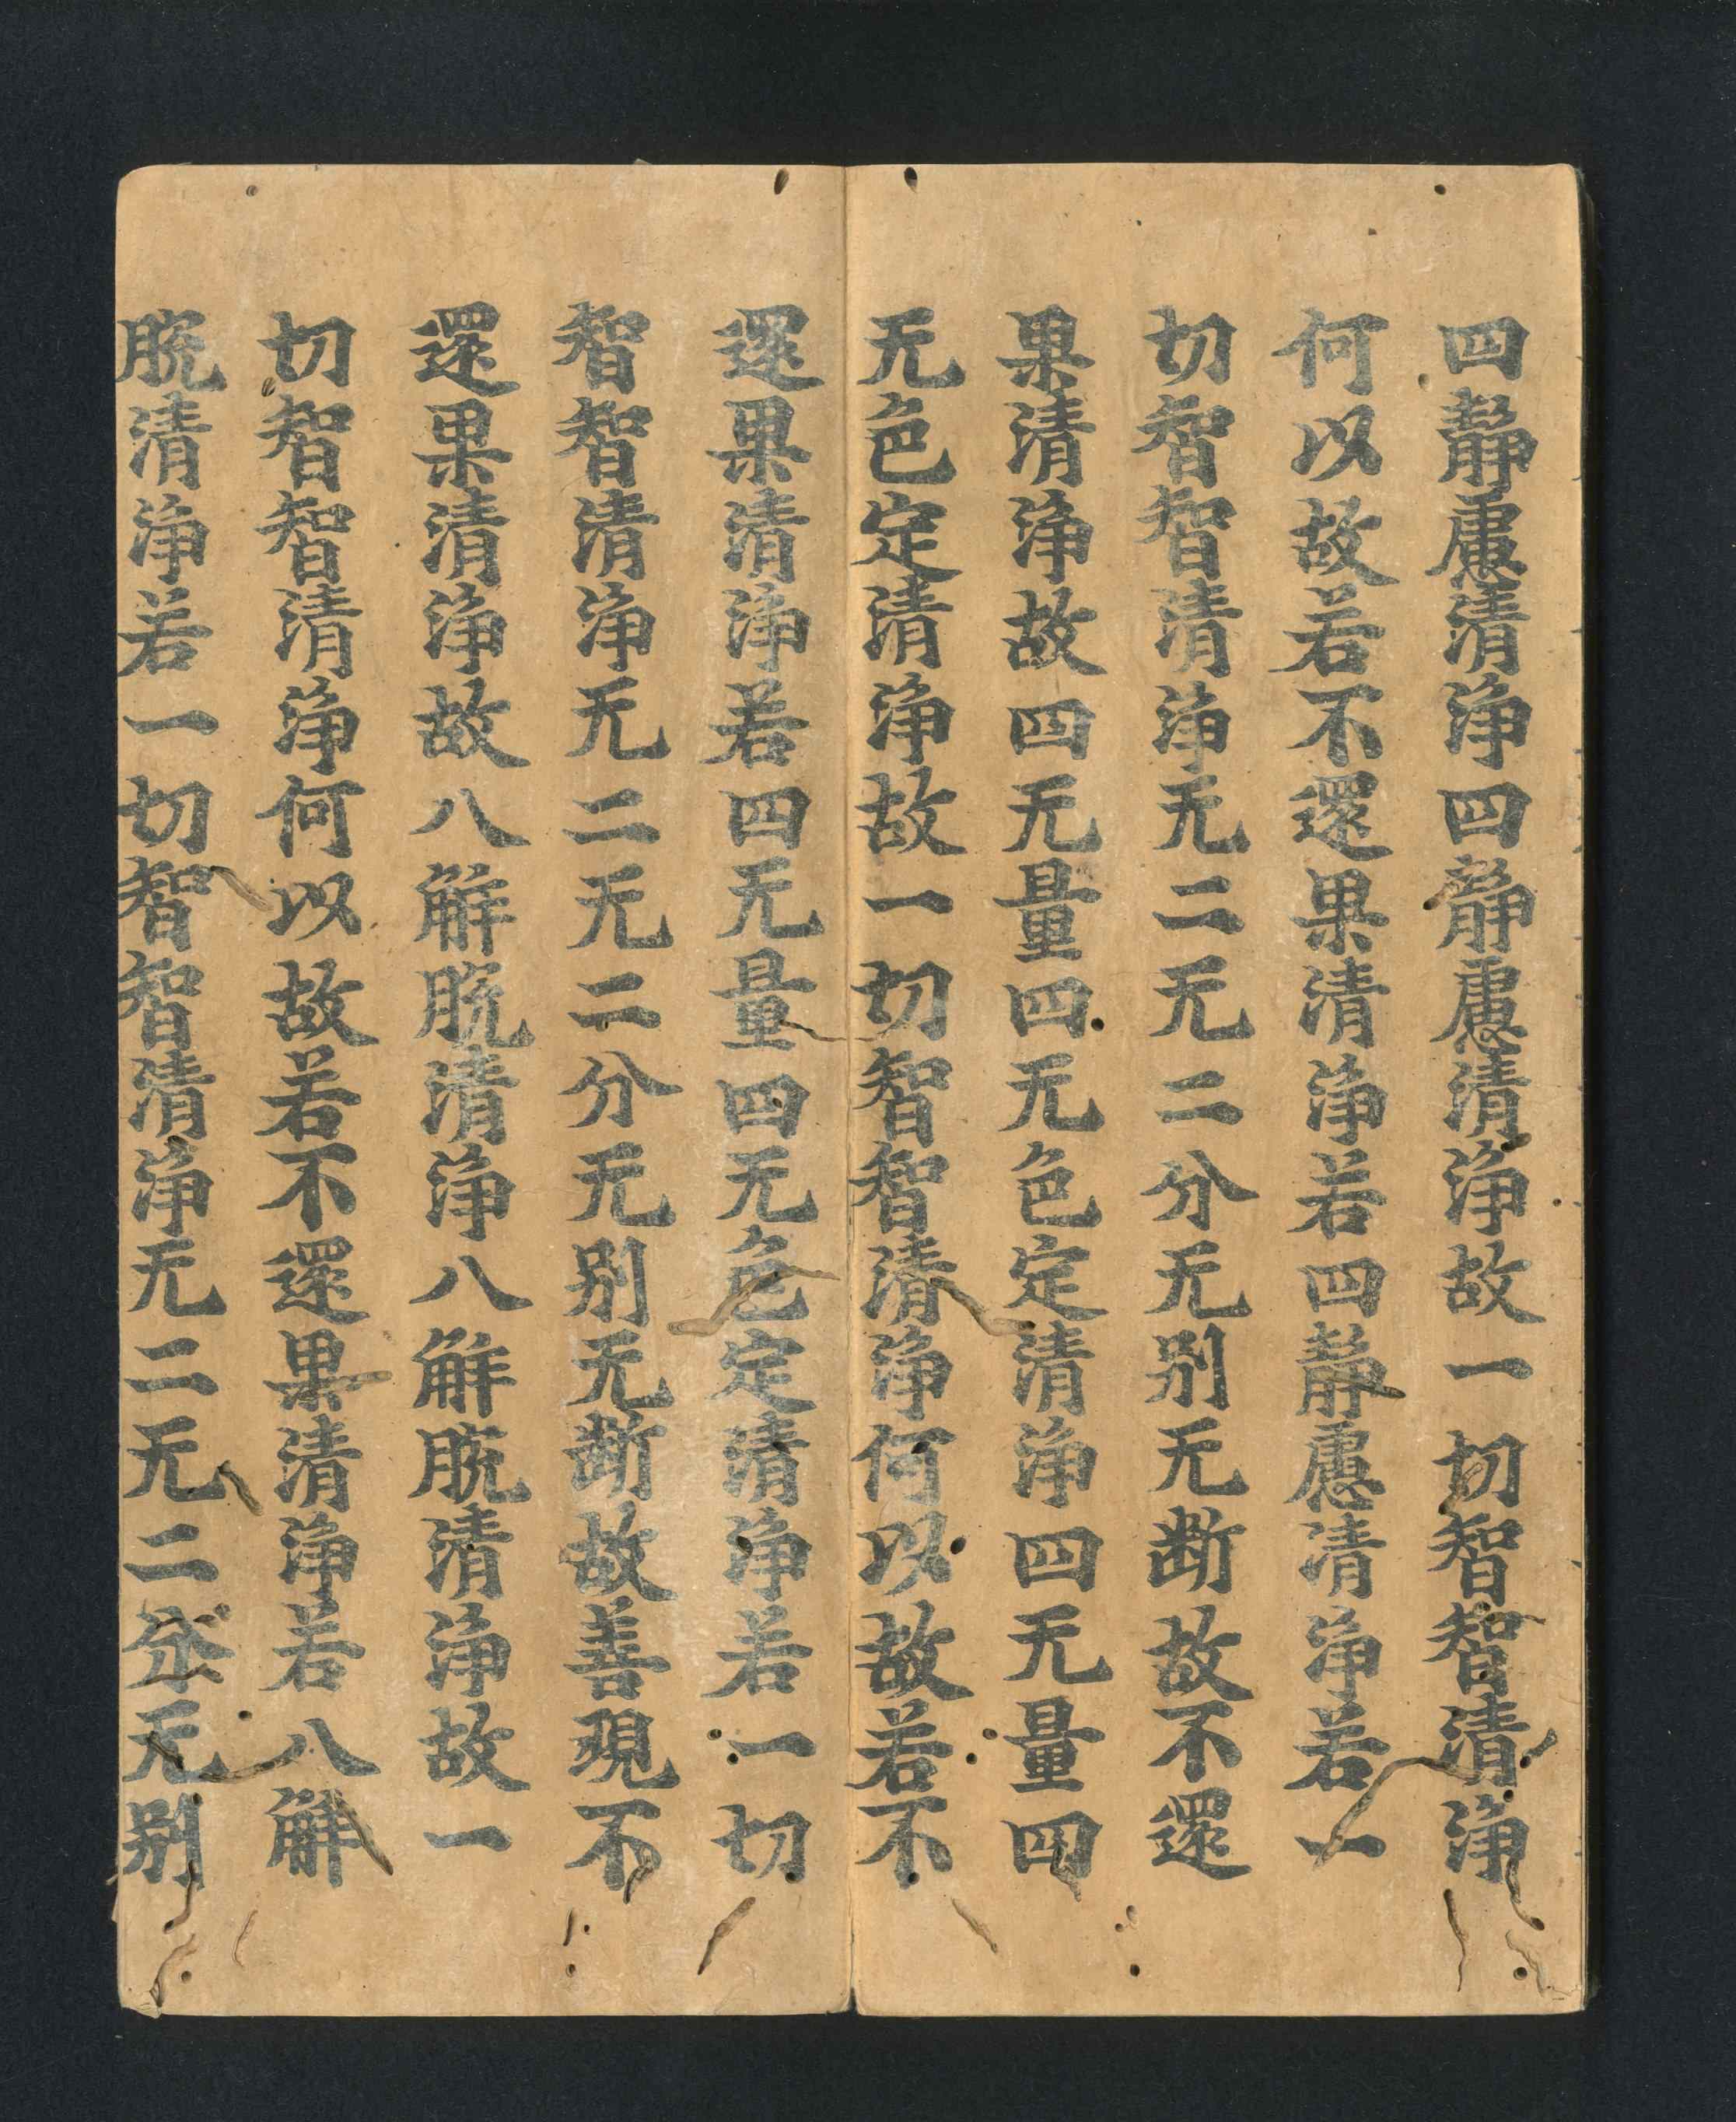 四靜慮清淨四靜慮清淨故一切智智清淨
何以故若不還果清淨若四靜慮清淨若一
切智智清淨无二无二分无別无斷故不還
果清淨故四无量四无色定清淨四无量四
无色定清淨故一切智智清淨何以故若不
還果清淨若四无量四无色定清淨若一切
智智清淨无二无二分无別无斷故善現不
還果清淨故八解脫清淨八解脫清淨故一
切智智清淨何以故若不還果清淨若八解
脫清淨若一切智智清淨无二无二分无別